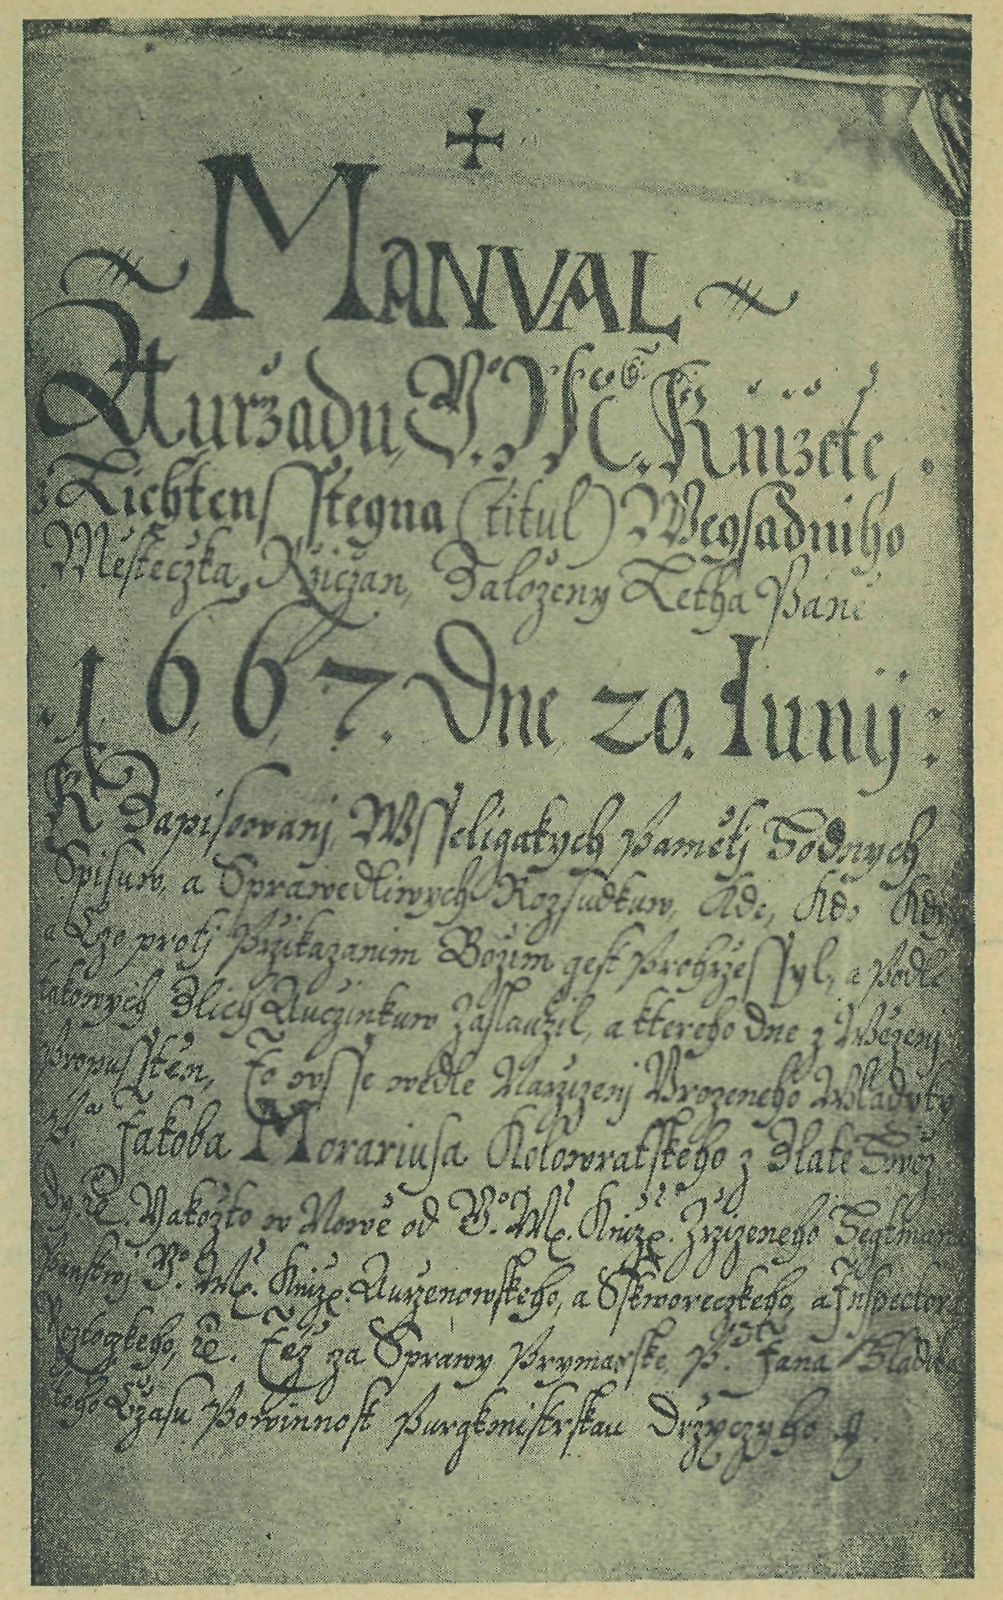 MANVAL
Auržadu, V. M. C. Knižete,
z Lichtenssteyna (titul) Weysadniho
Městeczka Ržiczan, Založeny Letha Páně
1667. Dne 20. Iunij:
K Zapisowanj Wsseligakych Pamětj Hodnych
Spisuw, a Sprawedliwych Rozsudkuw, Kde, Kdo Kdy
a Czo protj Przikazanim Božim gest Prohrzessyl, a Podle
takowych Zlich Auczinkuw Zaslaužil, a ktereho dne z Wězenj
Propusstěn, To wsse wedle Narzizenj Vrozeneho Wladyky
Pa Jakoba Morariusa Kolowratskeho z Zlate
Yakožto w Nowě od V. M. Kniž. Zrzizeneho Heytmana
Panstwj V. M. Kniž. Aurzenowskeho, a Skworeczkeho, a Inspectora
Kozloczkeho, Též za Sprawy Prymasske, P. Jana Sladka
toho Čzasu Powinnost Purgkmistrskau Držyczyho